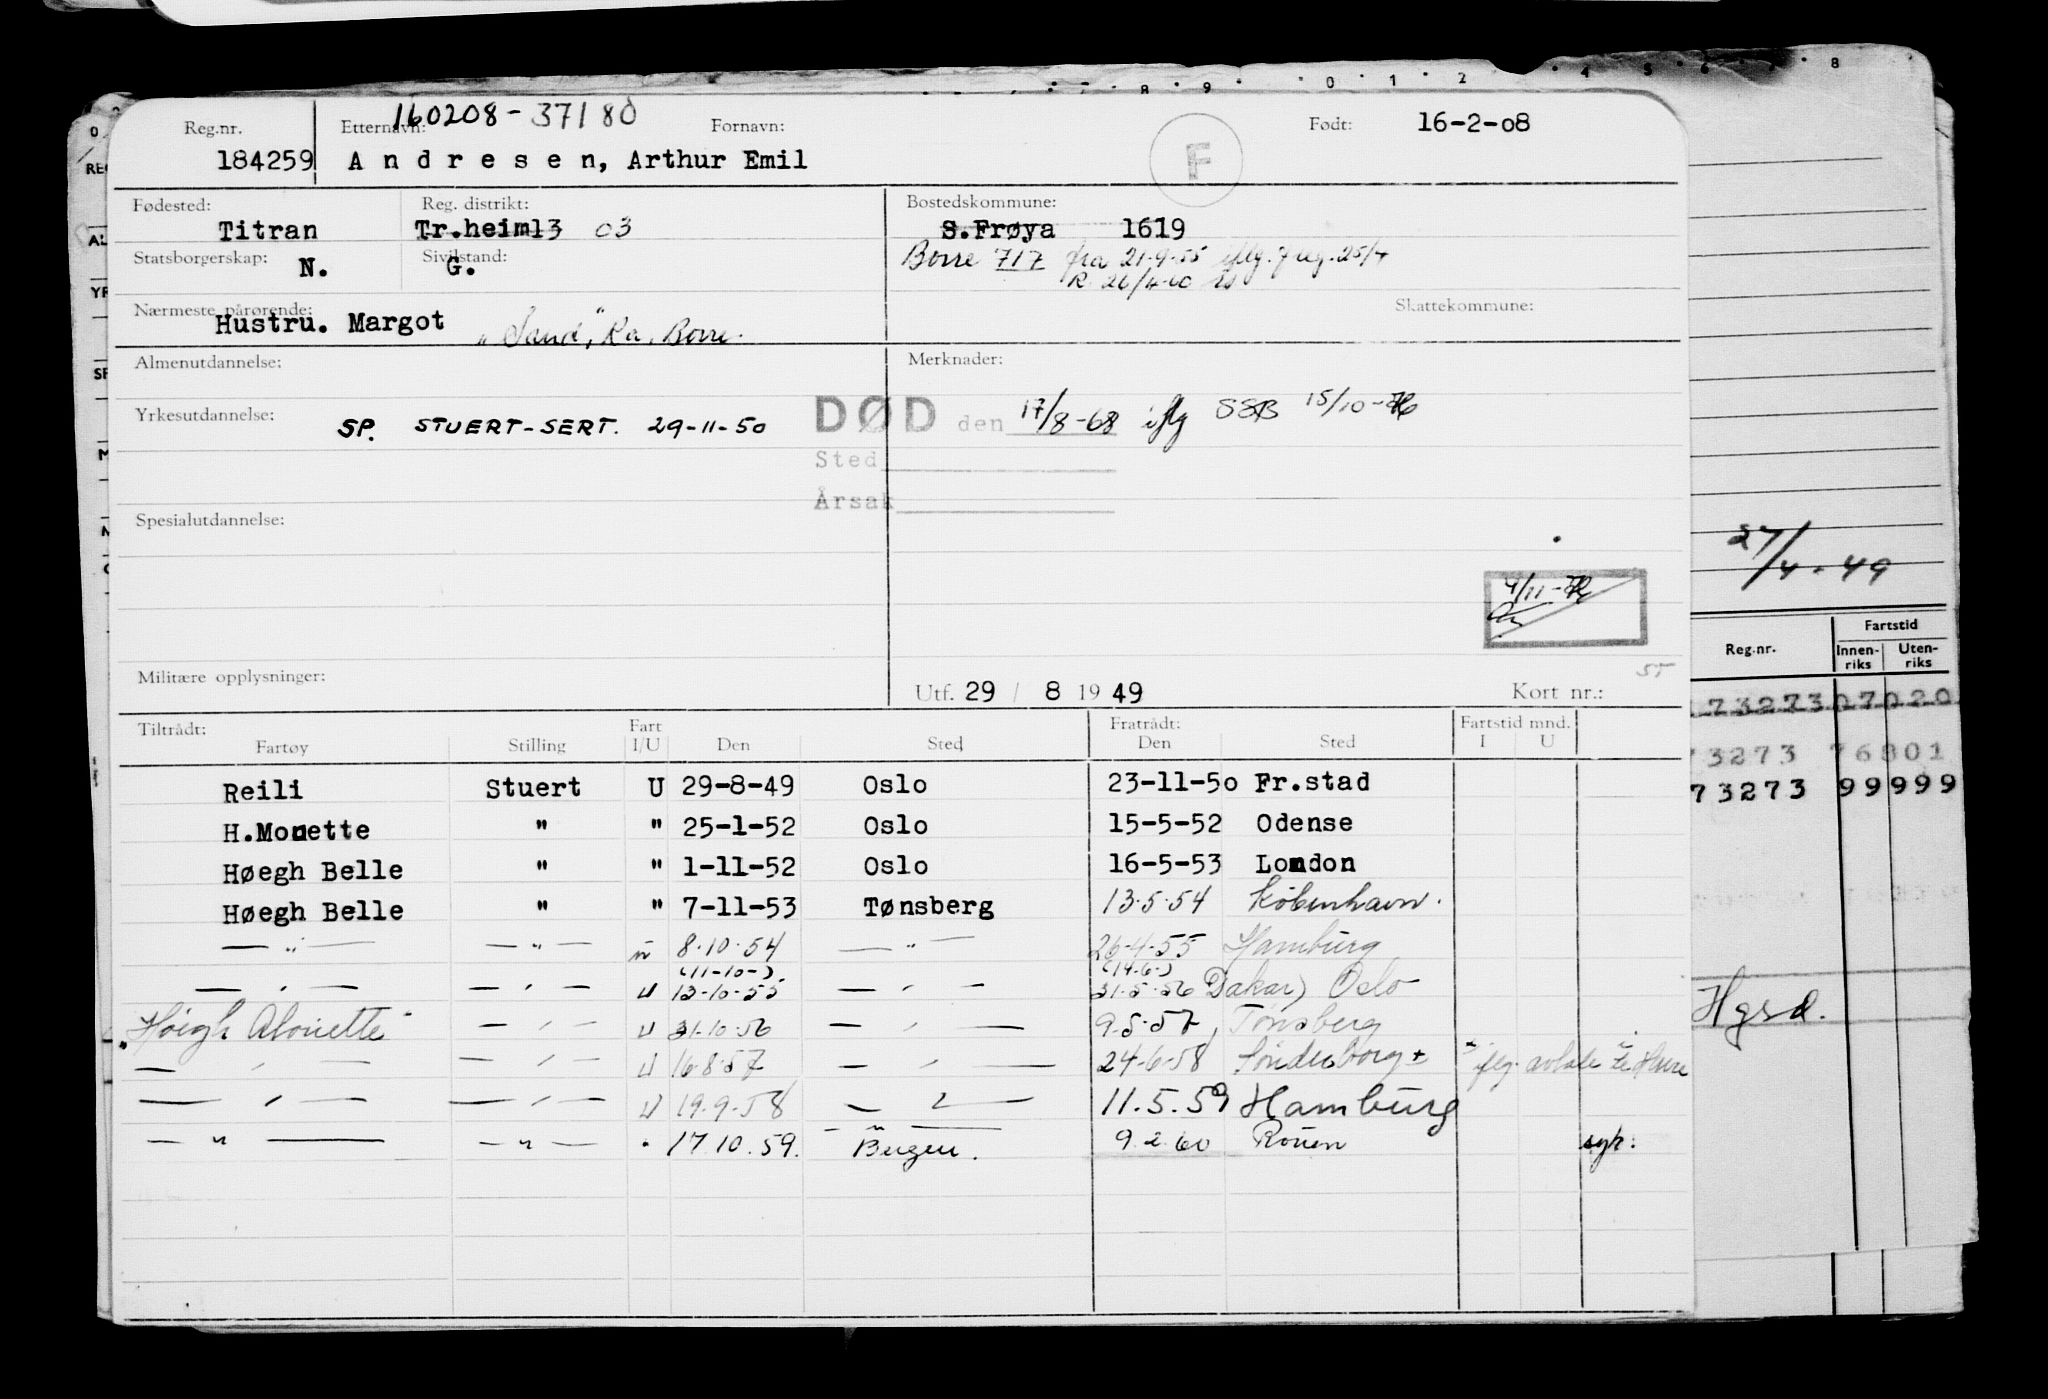 8 9 0 1 2 4 5 6 7 8
160208-37180
Reg.nr. Etternavn: Fornavn: Født: 16-2-08
184259 Andresen, Arthur Emil F
Fødested: Reg. distrikt: Bostedskommune:
Titran Tr.heim13 03 S.Frøya 1619
Statsborgerskap: N. Sivilstand: G. Borre 717 fra 21-9-55 iflg. freg. 25/4
R 26/4-60
Nærmeste pårørende: Skattekommune:
Hustru. Margot "Sand", Ra, Borre.
Almenutdannelse: Merknader:
Yrkesutdannelse: SP. STUERT-SERT. 29-11-50 DØD den 17/8-68 iflg SSB 15/10-76
Sted
Årsak
Spesialutdannelse:
27/4-49
4/11-76
Militære opplysninger: Utf. 29 / 8 1949 Kort nr.: 55
Tiltrådt: Fart Fratrådt: Fartstid mnd.
Fartøy Stilling I/U Den Sted Den Sted I U
Reili Stuert U 29-8-49 Oslo 23-11-50 Fr.stad
H.Monette " " 25-1-52 Oslo 15-5-52 Odense
Høegh Belle " " 1-11-52 Oslo 16-5-53 London
Høegh Belle " " 7-11-53 Tønsberg 13.5.54 København.
— " — — " — " 8.10.54 — " — 26-4-55 Hamburg
(11-10-) (14-6-)
— " — — " — U 13-10-55 — " — 31.5.56 Dakar) Oslo
"Høegh Alouette" — " — U 31.10.56 — " — 9.5.57, Tønsberg
— " — — " — U 16.8.57 — " — 24-6-58 Sønderborg + iflg. avtale Le Havre
— " — — " — U 19.9.58 — " — 11.5.59 Hamburg
— " — — " — " 17.10.59. Bergen. 9.2.60 Rouen syk.
Fartstid
Reg.nr. Innen-riks Uten-riks
173273 07020
73273 76801
73273 99999
Hgsd.